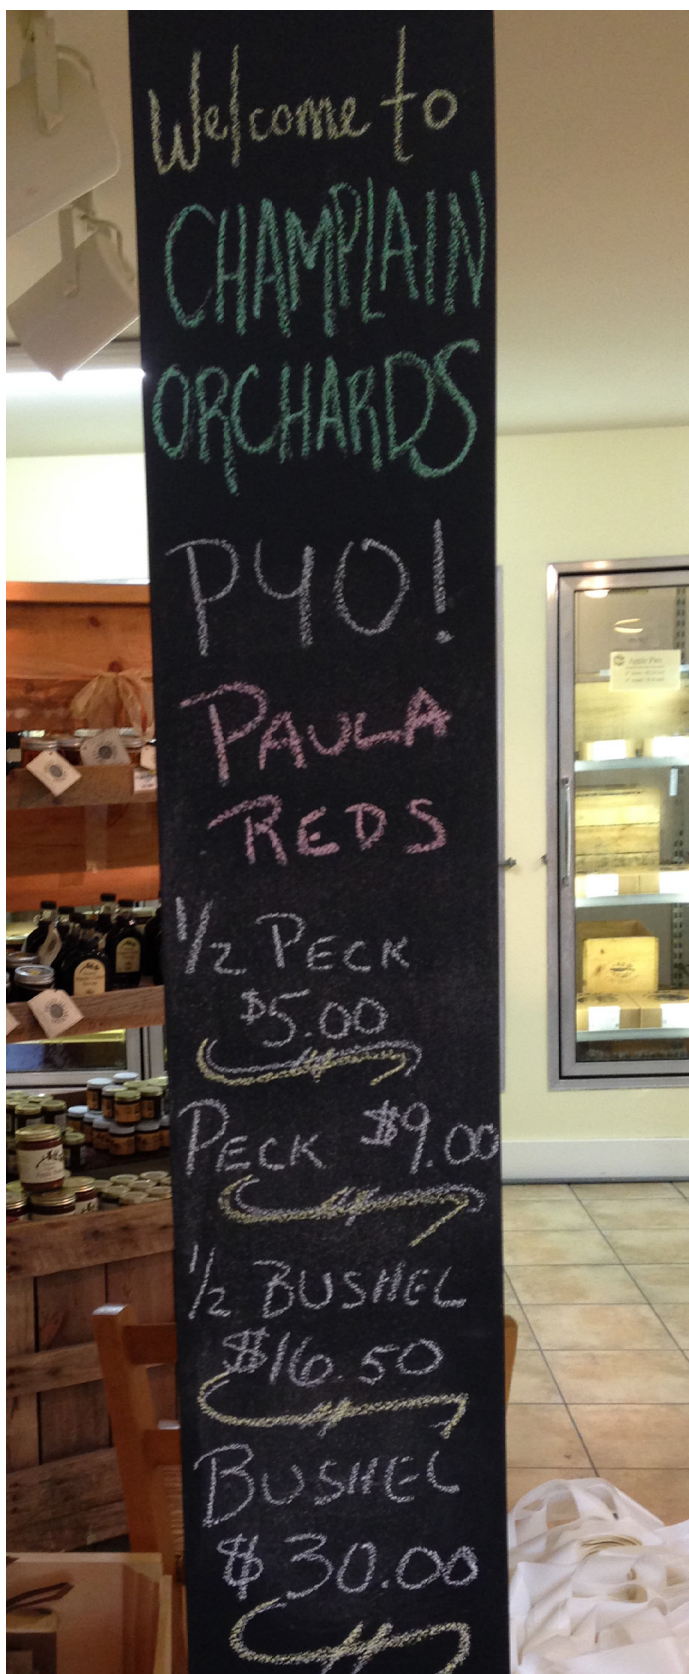 Welcome to
CHAMPLAIN
ORCHARDS
PYO!
PAULA
REDS
1/2 PECK
$5.00
PECK $9.00
1/2 BUSHEL
$16.50
BUSHEL
$30.00
Apple Pies